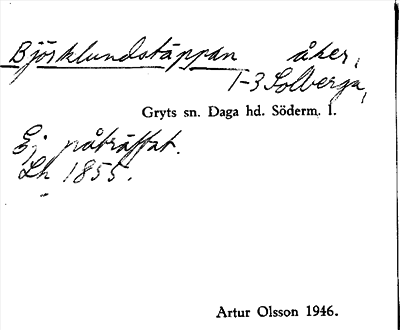 Björklundstäppan åker,
1-3 Solberga,
Gryts sn. Daga hd. Söderm. l.
Ej påträffat.
Lh 1855.
Artur Olsson 1946.